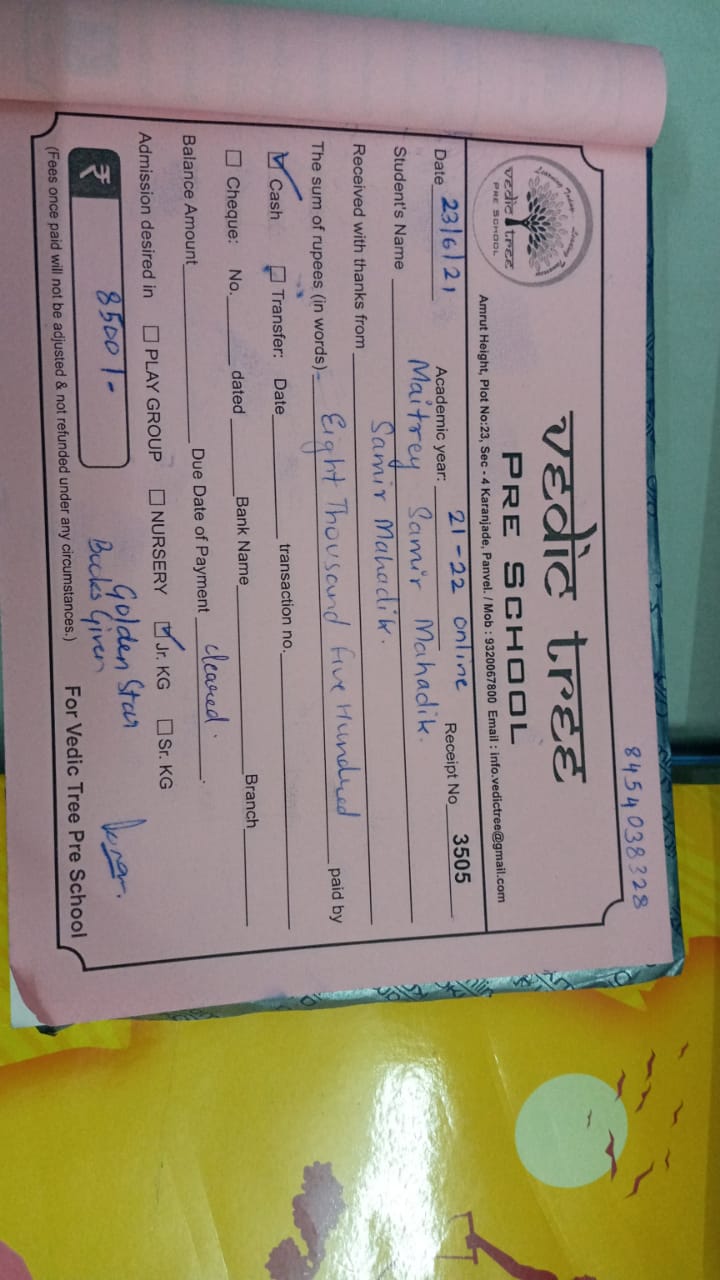 8454038328
vedic tree
PRE SCHOOL
vedic tree
PRE SCHOOL
Amrut Height, Plot No:23, Sec - 4 Karanjade, Panvel. / Mob : 9320067800 Email : info.vedictree@gmail.com
Date 23/6/21 Academic year: 21-22 online Receipt No 3505
Student's Name Maitrey Samir Mahadik.
Received with thanks from Samir Mahadik.
The sum of rupees (in words) Eight Thousand five Hundred paid by
Cash Transfer: Date transaction no.
Cheque: No. dated Bank Name Branch
Balance Amount Due Date of Payment cleared.
Admission desired in PLAY GROUP NURSERY Jr. KG Sr. KG
₹ 8500/- Golden Star
Books Given
(Fees once paid will not be adjusted & not refunded under any circumstances.) For Vedic Tree Pre School